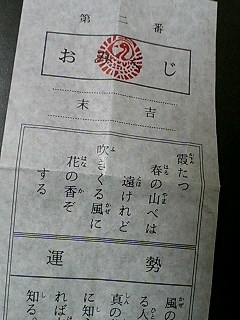 第二番
おみくじ
末吉
霞たつ
春の山べは
遠けれど
吹きくる風に
花の香ぞ
する
運勢
風の
る人
真の
に知
れば
知る。